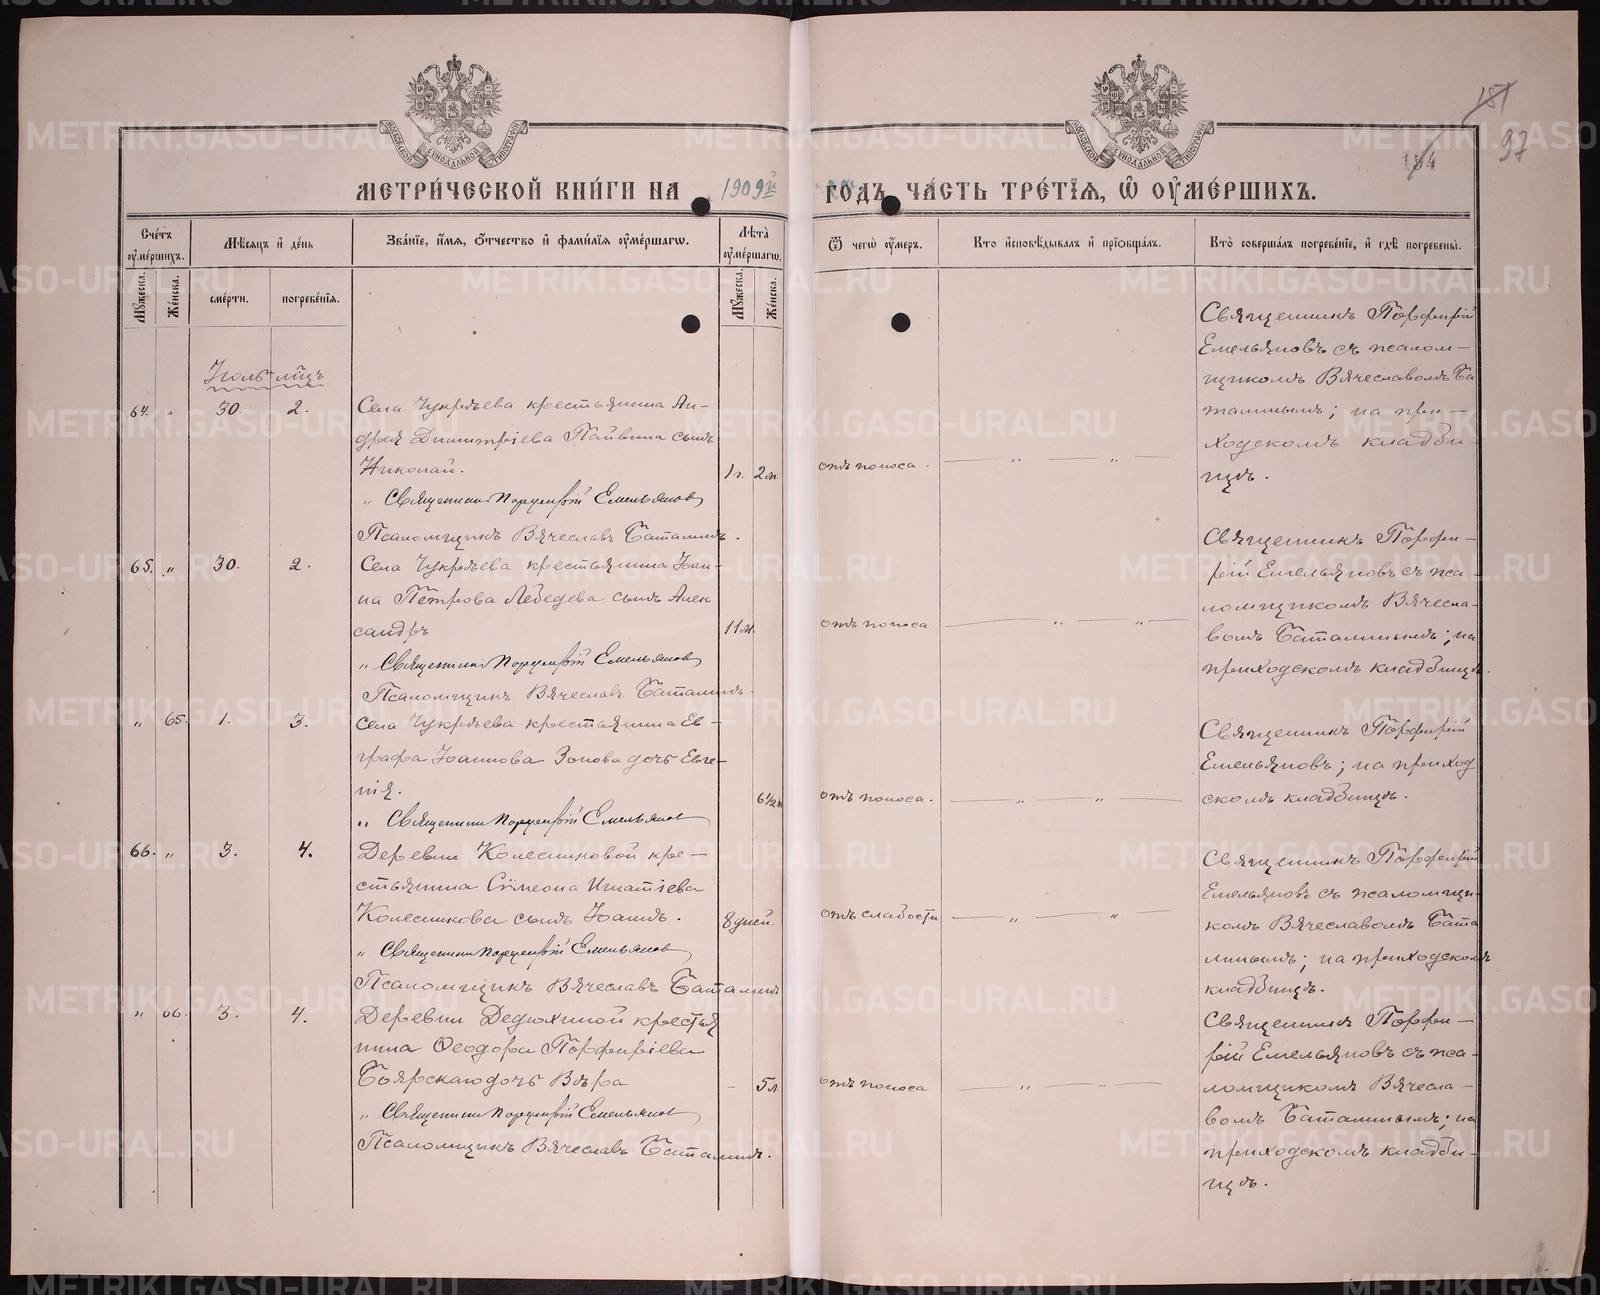 МЕТРИ́ЧЕСКОЙ КНИ́ГИ НА 1909й ГОДЪ, ЧА́СТЬ ТРЕ́ТЇѦ, Ѽ ОУ҆МЕ́РШИХЪ.
181
184
97
Сче́тъ оу҆ме́ршихъ.
Мꙋ́жеска.
Же́нска.
Мѣ́сѧцъ и҆ де́нь
сме́рти.
погребе́нїѧ.
Зва́нїе, и҆́мѧ, ѻ҆́тчество и҆ фами́лїѧ оу҆ме́ршагѡ.
Лѣ́та оу҆ме́ршагѡ.
Мꙋ́жеска.
Же́нска.
Ѿ чегѡ̀ оу҆́меръ.
Кто̀ и҆сповѣ́дывалъ и҆ прїѡбща́лъ.
Кто̀ соверша́лъ погребе́нїе, и҆ гдѣ̀ погребены̀.
Іюль мѣсяцъ
64. " 30. 2.
Села Чукрѣева крестьянина Ан-
дрея Димитріева Пайвина сынъ
Николай.
1 г. 2 м.
отъ поноса.
" Священникъ Порфирій Емельяновъ
Псаломщикъ Вячеславъ Баталинъ.
Священникъ Порфирій
Емельяновъ съ псалом-
щикомъ Вячеславомъ Ба
талинымъ; на при-
ходскомъ кладби-
щѣ.
65. " 30. 2.
Села Чукрѣева крестьянина Іоан-
на Петрова Лебедева сынъ Алек
сандръ
11 м.
отъ поноса.
" Священникъ Порфирій Емельяновъ
Псаломщикъ Вячеславъ Баталинъ.
Священникъ Порфи-
рій Емельяновъ съ пса-
ломщикомъ Вячесла-
вомъ Баталинымъ; на
приходскомъ кладбищѣ.
" 65. 1. 3.
Села Чукрѣева крестьянина Ев-
графа Іоаннова Зонова дочь Евге-
нія.
6 1/2 м
отъ поноса.
" Священникъ Порфирій Емельяновъ
Священникъ Порфирій
Емельяновъ; на приход
скомъ кладбищѣ.
66. " 3. 4.
Деревни Колесниковой кре-
стьянина Сѵмеона Игнатіева
Колесникова сынъ Іоаннъ.
8 дней.
отъ слабости
" Священникъ Порфирій Емельяновъ
Псаломщикъ Вячеславъ Баталинъ
Священникъ Порфирій
Емельяновъ съ псаломщи-
комъ Вячеславомъ Бата
линымъ; на приходскомъ
кладбищѣ.
" 66. 3. 4.
Деревни Дедюхиной крестья
нина Ѳеодора Порфиріева
Боярскаго дочь Вѣра
- 5 л.
отъ поноса
" Священникъ Порфирій Емельяновъ
Псаломщикъ Вячеславъ Баталинъ.
Священникъ Порфи-
рій Емельяновъ съ пса-
ломщикомъ Вячесла-
вомъ Баталинымъ; на
приходскомъ кладби-
щѣ.
METRIKI.GASO-URAL.RU